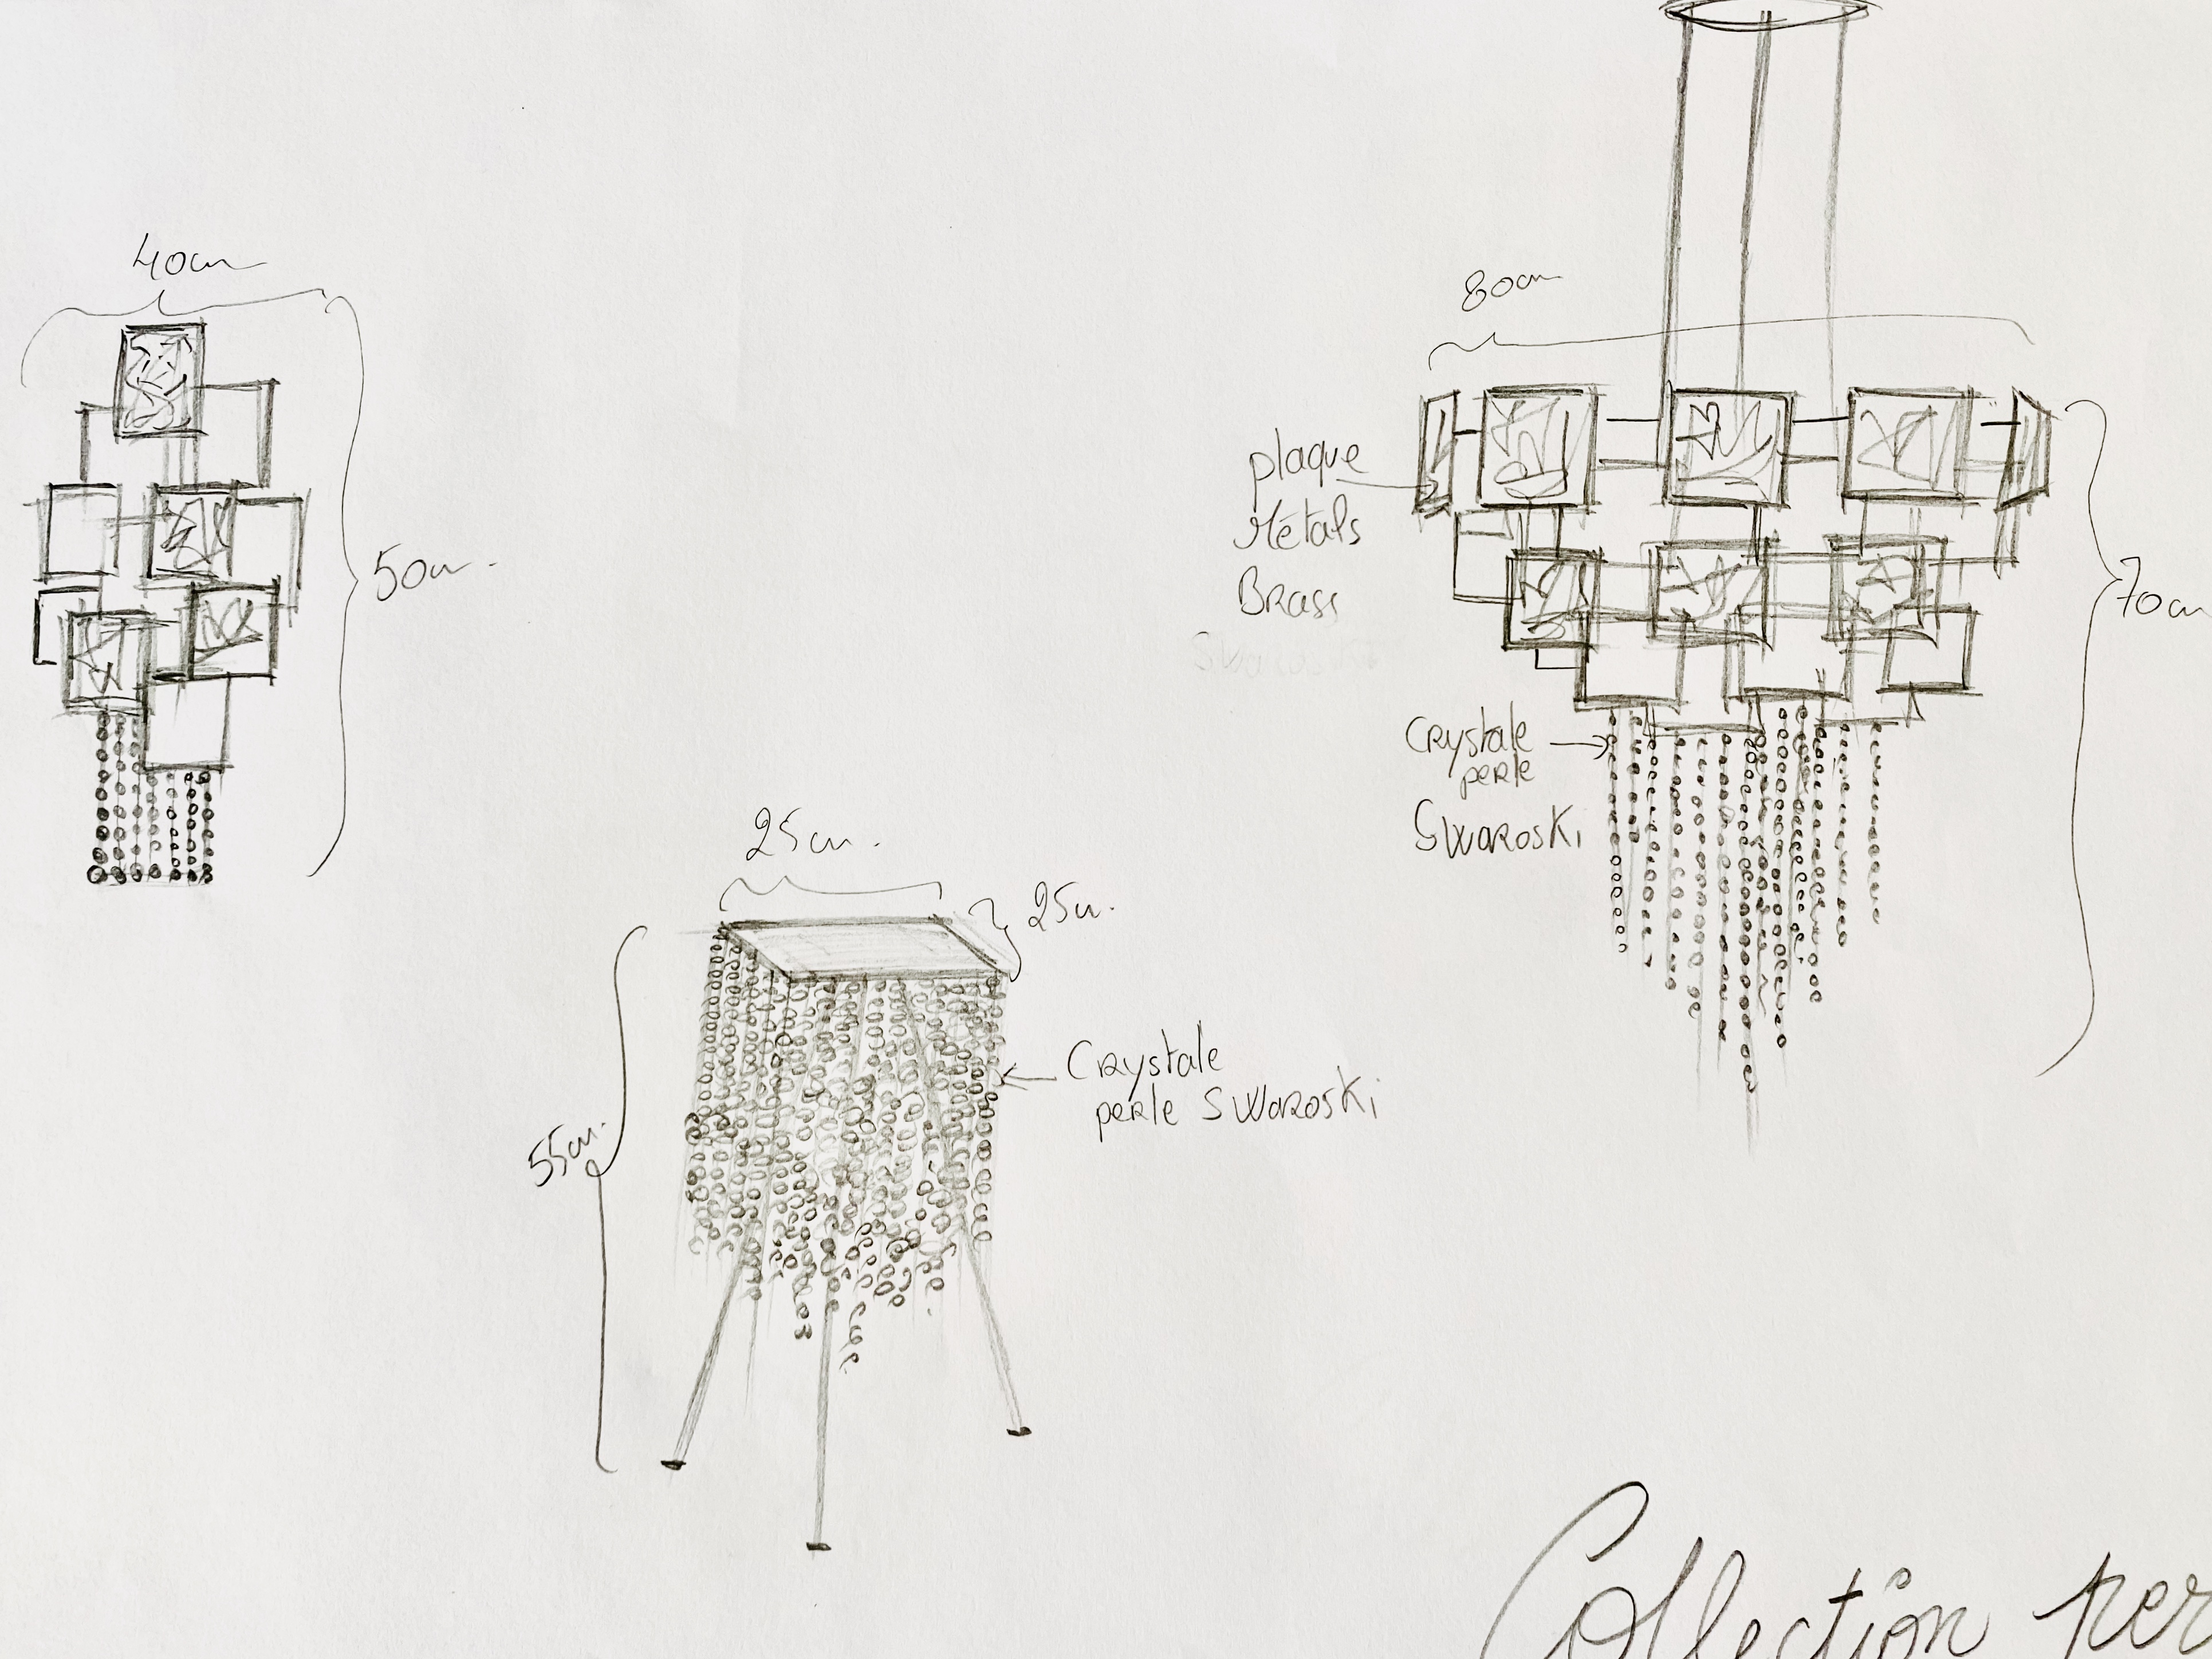 40cm
50cm.
80cm
70cm
plaque
Métals
Brass
Swaroski
Crystale
perle
Swaroski
25cm.
25cm.
55cm.
Crystale
perle Swaroski
Collection per